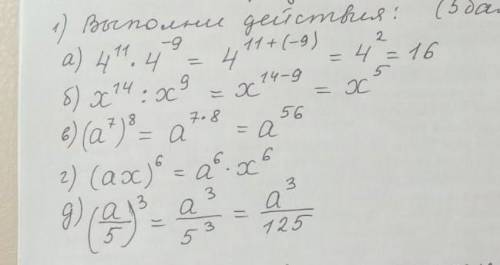 1) Выполни действия: (5 ба
а) 4¹¹ · 4⁻⁹ = 4¹¹⁺⁽⁻⁹⁾ = 4² = 16
б) x¹⁴ : x⁹ = x¹⁴⁻⁹ = x⁵
в) (a⁷)⁸ = a⁷·⁸ = a⁵⁶
г) (ax)⁶ = a⁶ · x⁶
д) (a/5)³ = a³/5³ = a³/125